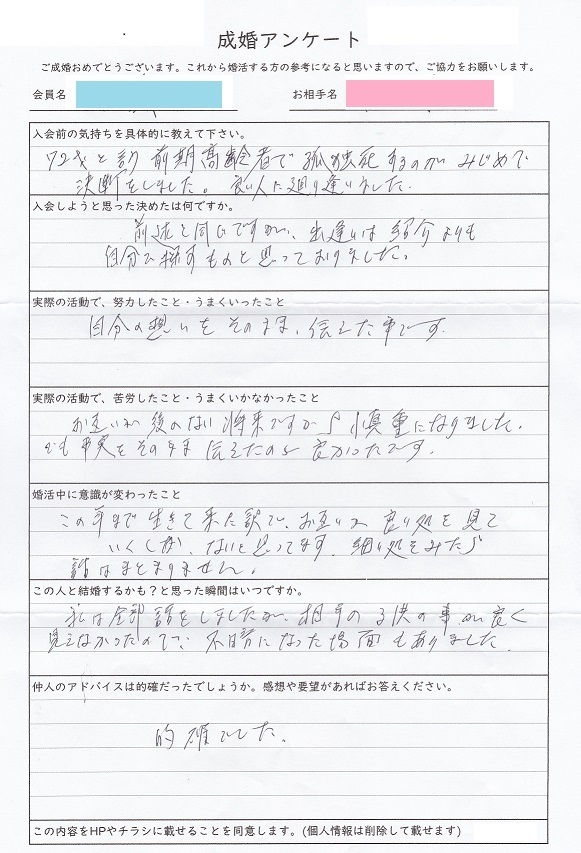 成婚アンケート
ご成婚おめでとうございます。これから婚活する方の参考になると思いますので、ご協力をお願いします。
会員名
お相手名
入会前の気持ちを具体的に教えて下さい。
72才と言う前期高齢者で孤独死するのがみじめで
決断をしました。良い人に廻り逢いました。
入会しようと思った決めたは何ですか。
前述と同じですが、出逢いは紹介よりも
自分で探すものと思っておりました。
実際の活動で、努力したこと・うまくいったこと
自分の想いをそのまま、伝えた事です。
実際の活動で、苦労したこと・うまくいかなかったこと
お互いが後のない将来ですから慎重になりました。
でも事実をそのまま伝えたのが良かったです。
婚活中に意識が変わったこと
この年まで生きて来た訳で、お互いの良い処を見て
いくしか、ないと思ってます。細い処をみたら
話はまとまりません。
この人と結婚するかも？と思った瞬間はいつですか。
私は全部話をしましたが、相手の子供の事が良く
見えなかったので、不安になった場面もありました。
仲人のアドバイスは的確だったでしょうか。感想や要望があればお答えください。
的確でした。
この内容をHPやチラシに載せることを同意します。(個人情報は削除して載せます)